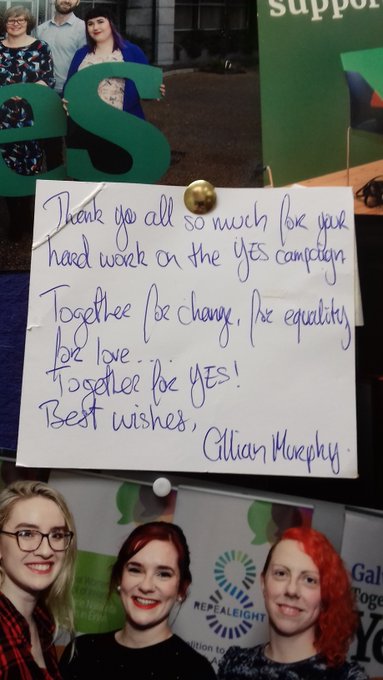 support
es
Thank you all so much for your
hard work on the YES campaign
Together for change, for equality
for love...
Together for YES!
Best wishes,
Cillian Murphy.
REPEALEIGHT
Galw
Toge
for
Ye